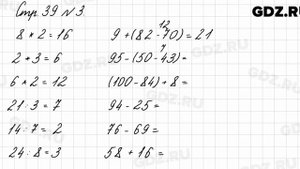 GDZ.RU
Стр. 39 № 3
8 * 2 = 16
2 * 3 = 6
6 * 2 = 12
21 : 3 = 7
14 : 7 = 2
24 : 8 = 3
12
9 + (82 - 70) = 21
7
95 - (50 - 43) =
(100 - 84) + 8 =
94 - 25 =
76 - 69 =
58 + 16 =
GDZ.RU